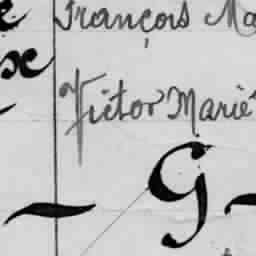 François Ma
Victor Marie
— G —